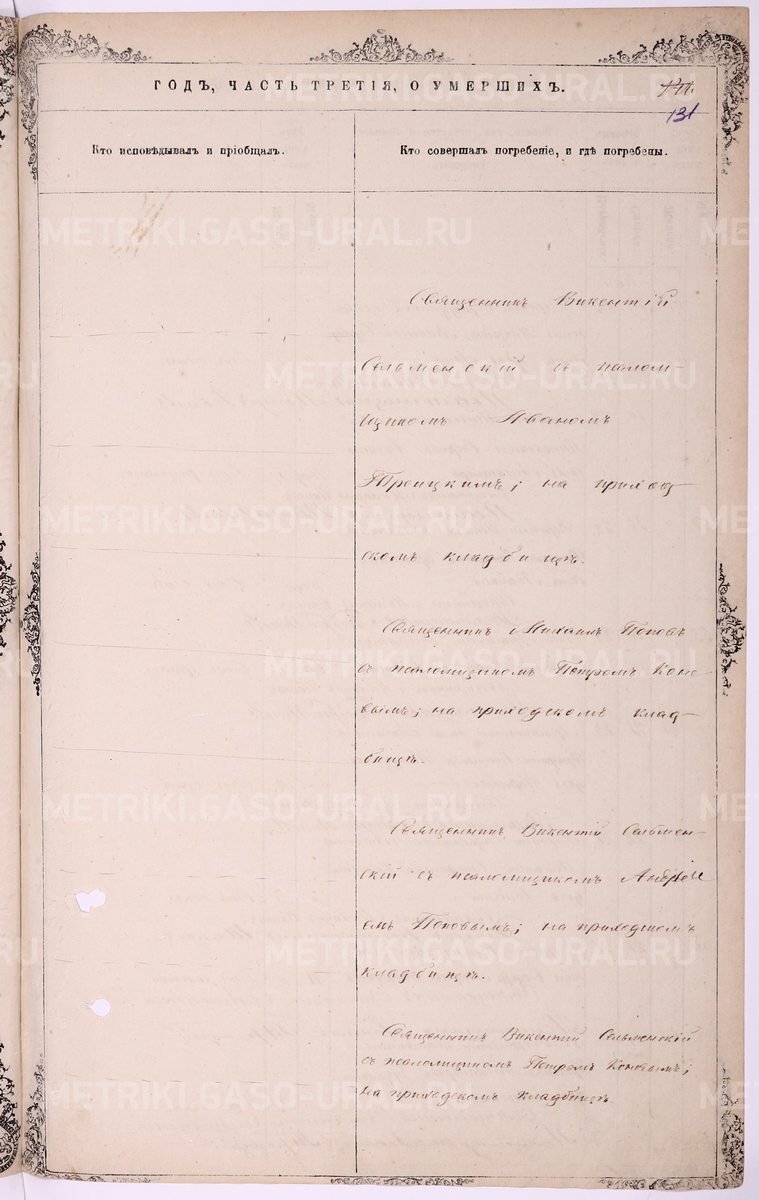 ГОДЪ, ЧАСТЬ ТРЕТІЯ, О УМЕРШИХЪ.
131
Кто исповѣдывалъ и пріобщалъ.
Кто совершалъ погребеніе, и гдѣ погребены.
Священникъ Викентій
Сельменскій съ псалом-
щикомъ Иваномъ
Троицкимъ; на приход-
скомъ кладбищѣ.
Священникъ Михаилъ Поповъ
съ псаломщикомъ Петромъ Коно-
вымъ; на приходскомъ клад-
бищѣ.
Священникъ Викентій Сельмен-
скій съ псаломщикомъ Андрѣе
емъ Поповымъ; на приходскомъ
кладбищѣ.
Священникъ Викентій Сельменскій
съ псаломщикомъ Петромъ Коновымъ;
на приходскомъ кладбищѣ.
METRIKI.GASO-URAL.RU